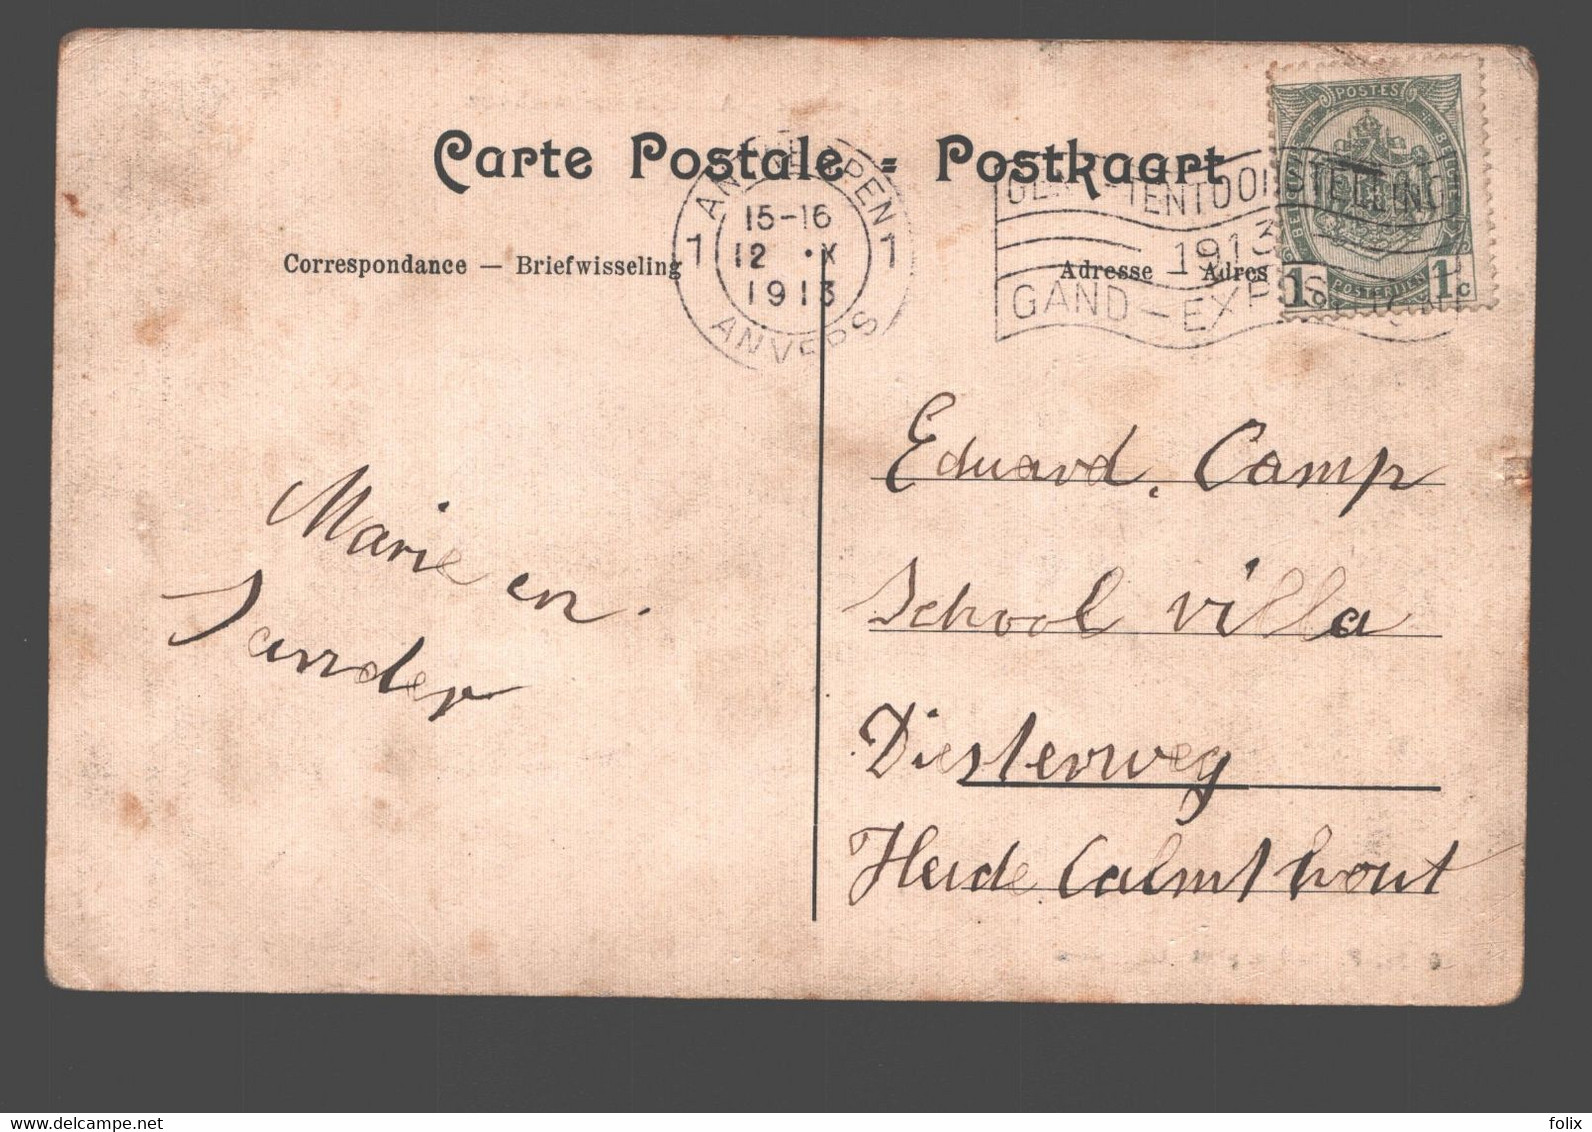 Carte Postale = Postkaart
POSTES
ANTWERPEN
1 15-16 1
12 X
1913
ANVERS
GENT-TENTOONSTELLING
1913
GAND-EXPOSITION
1c 1c
POSTERIJEN
Correspondance — Briefwisseling
Adresse Adres
Marie en
Sander
Eduard. Camp
School villa
Diesterweg
Heide Calmthout
folix